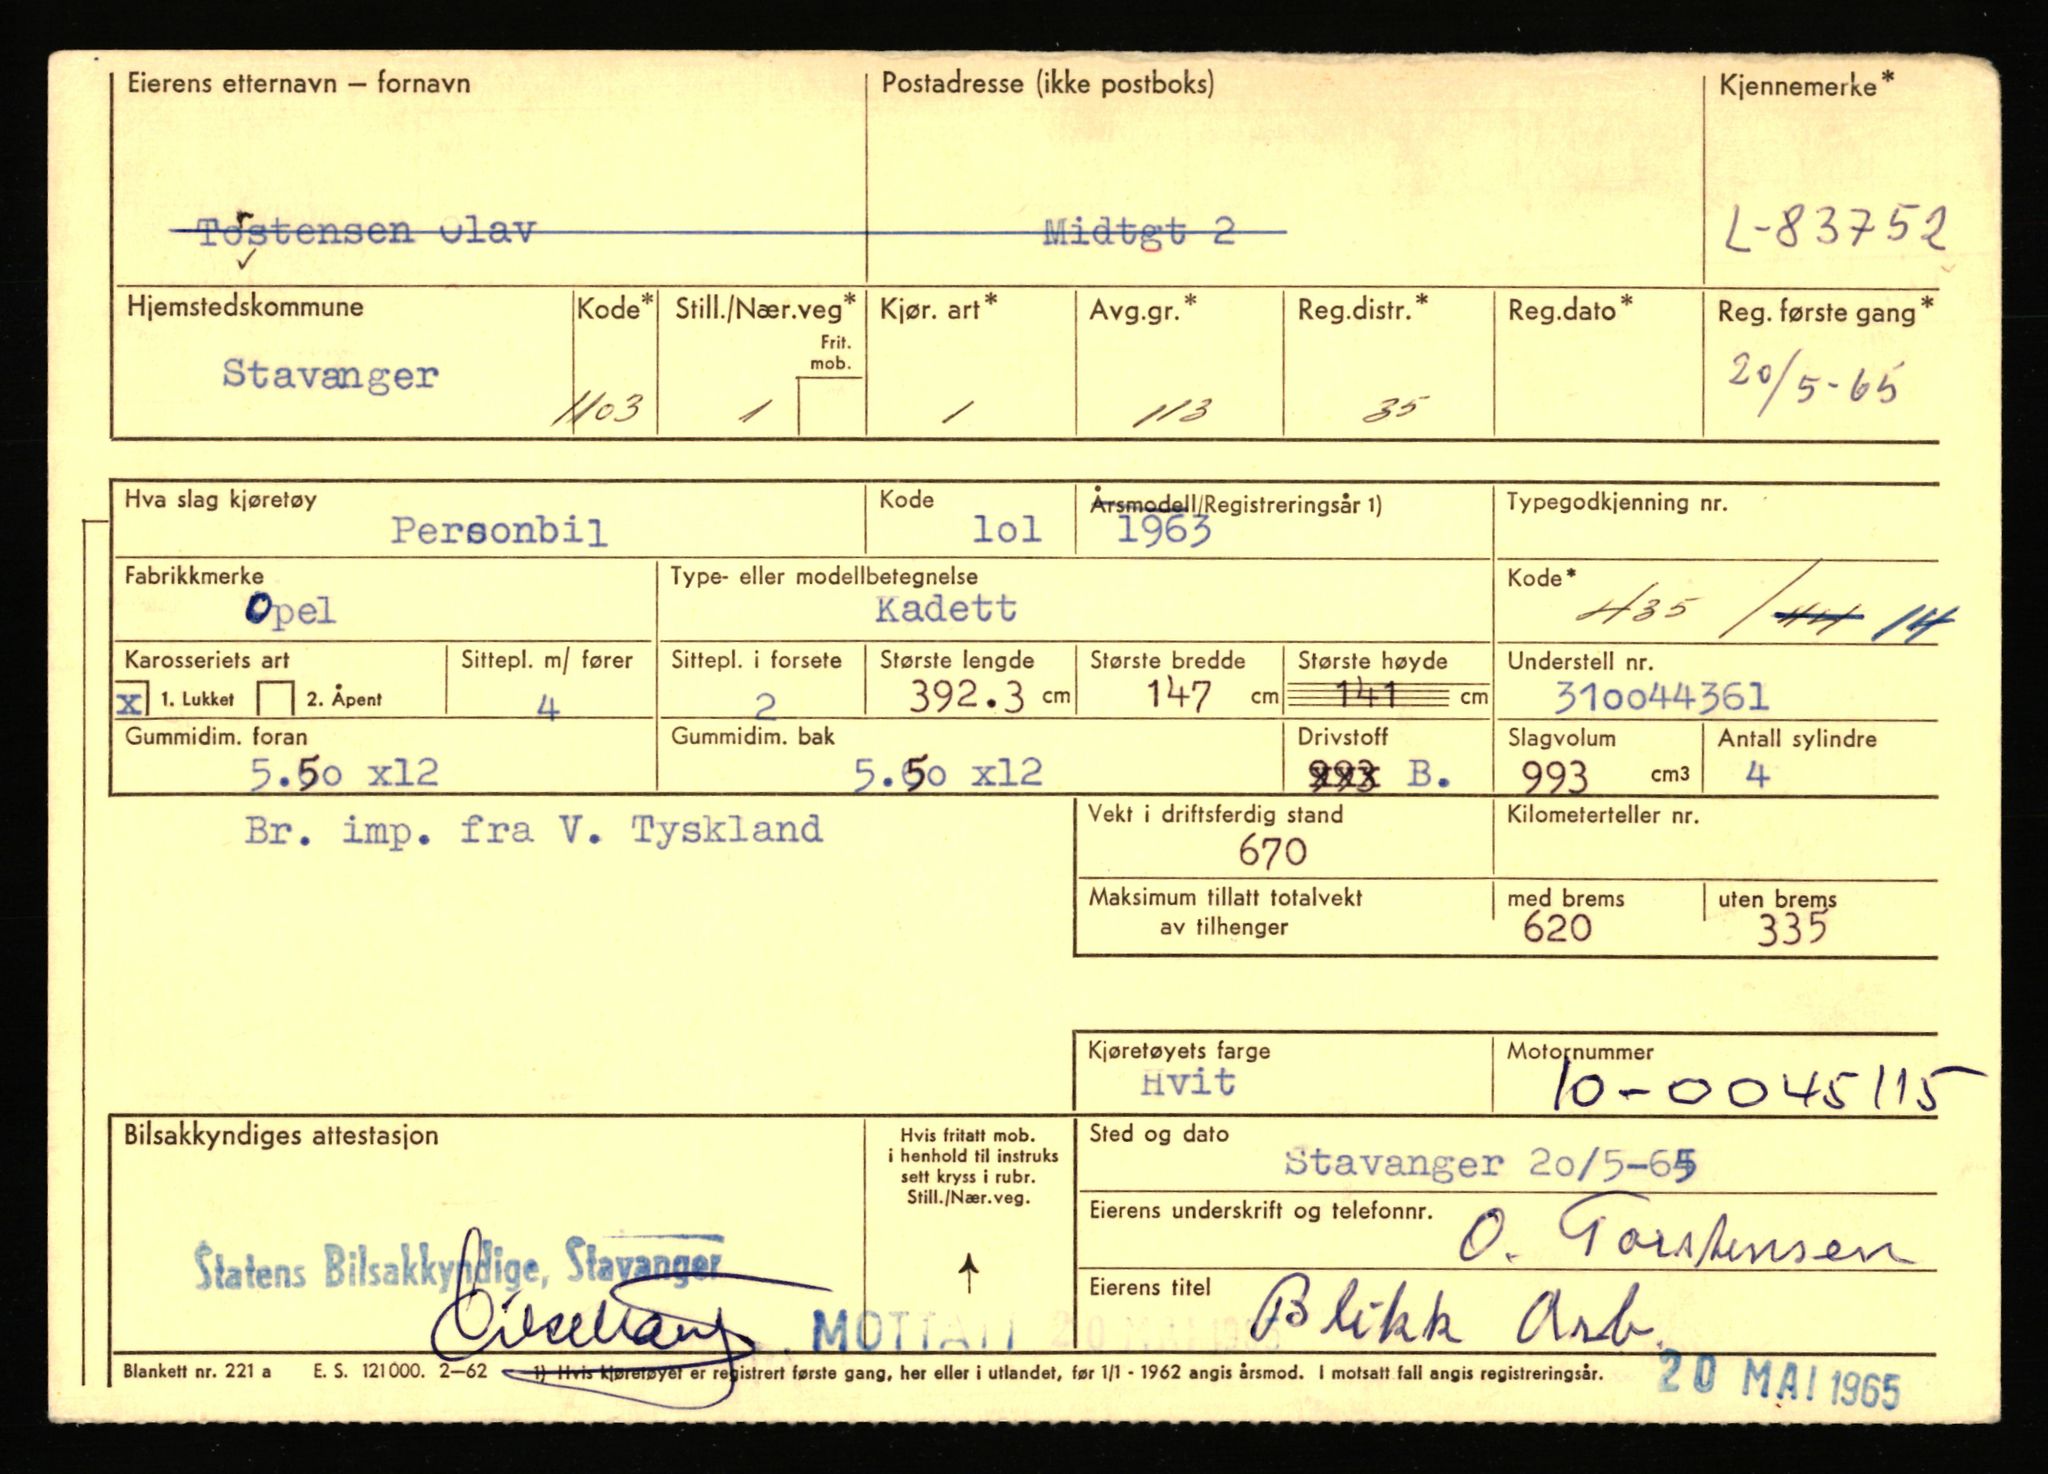 Eierens etternavn – fornavn
Postadresse (ikke postboks)
Kjennemerke*
Torstensen Olav
Midtgt 2
L-83752
Hjemstedskommune
Kode*
Still./Nær.veg*
Kjør. art*
Avg.gr.*
Reg.distr.*
Reg.dato*
Reg. første gang*
Frit.
mob.
Stavanger
1103
1
1
113
35
20/5-65
Hva slag kjøretøy
Kode
Årsmodell/Registreringsår 1)
Typegodkjenning nr.
Personbil
lol
1963
Fabrikkmerke
Type- eller modellbetegnelse
Kode*
Opel
Kadett
435 / 44 14
Karosseriets art
Sittepl. m/ fører
Sittepl. i forsete
Største lengde
Største bredde
Største høyde
Understell nr.
x 1. Lukket
2. Åpent
4
2
392.3 cm
147 cm
141 cm
310044361
Gummidim. foran
Gummidim. bak
Drivstoff
Slagvolum
Antall sylindre
5.50 x12
5.50 x12
993 B.
993 cm3
4
Br. imp. fra V. Tyskland
Vekt i driftsferdig stand
Kilometerteller nr.
670
Maksimum tillatt totalvekt
av tilhenger
med brems
uten brems
620
335
Kjøretøyets farge
Motornummer
Hvit
10-0045115
Bilsakkyndiges attestasjon
Hvis fritatt mob.
i henhold til instruks
sett kryss i rubr.
Still./Nær.veg.
Sted og dato
Stavanger 20/5-65
Eierens underskrift og telefonnr.
O. Torstensen
Statens Bilsakkyndige, Stavanger
Eierens titel
Blikk Arb.
MOTTATT 20 MAI 1965
Blankett nr. 221 a E. S. 121000. 2–62 1) Hvis kjøretøyet er registrert første gang, her eller i utlandet, før 1/1 - 1962 angis årsmod. I motsatt fall angis registreringsår.
20 MAI 1965